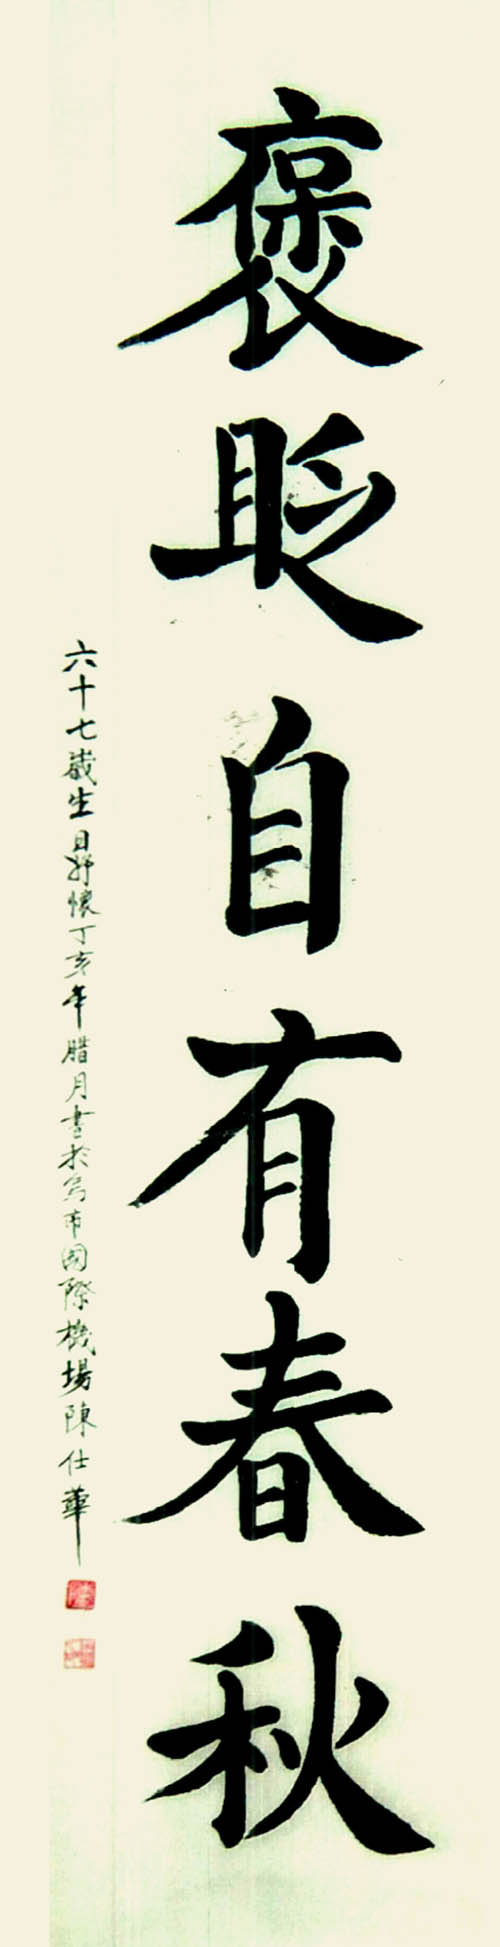 褒眨自有春秋
六十七歲生日舒懷丁亥年腊月書於烏市國際機場陳仕華